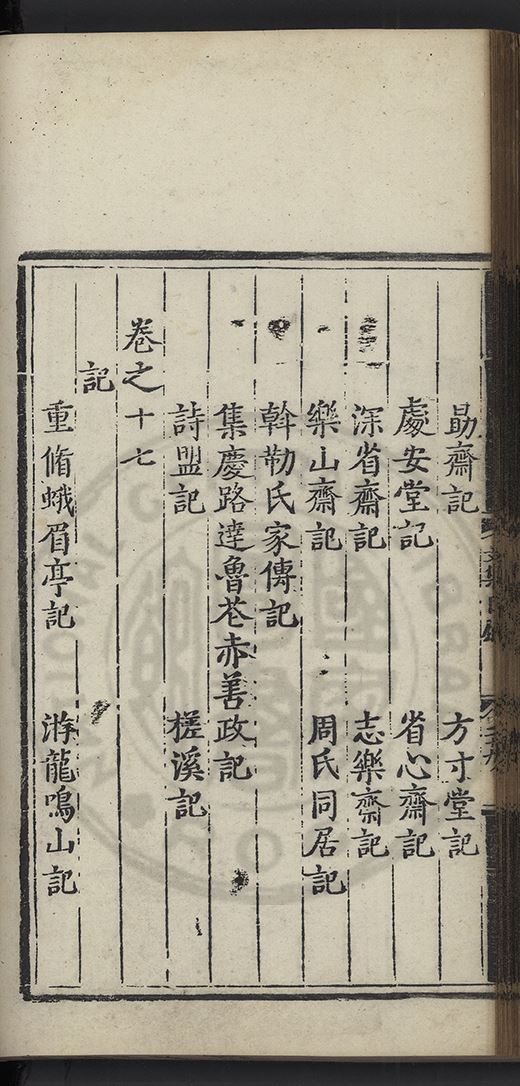 勗齋記 方寸堂記
處安堂記 省心齋記
深省齋記 志樂齋記
樂山齋記 周氏同居記
斡勒氏家傳記
集慶路達魯花赤善政記
詩盟記 槎溪記
卷之十七
記
重脩蛾眉亭記 游龍鳴山記